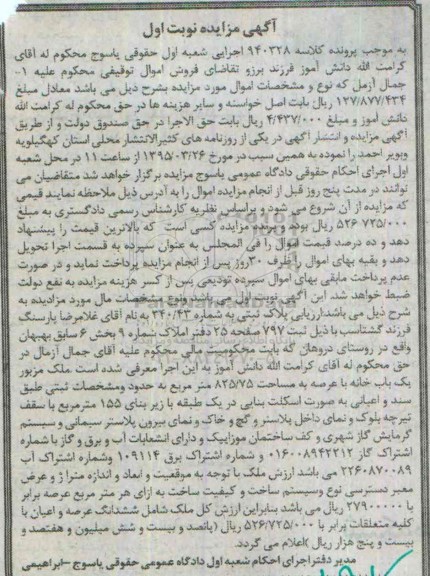 آگهی مزایده نوبت اول
به موجب پرونده کلاسه ۹۴۰۳۲۸ اجرایی شعبه اول حقوقی یاسوج محکوم له آقای
کرامت الله دانش آموز فرزند برزو تقاضای فروش اموال توقیفی محکوم علیه ۱-
جمال آزمل که نوع و مشخصات اموال مورد مزایده بشرح ذیل می باشد معادل مبلغ
۱۲۷/۸۷۷/۴۳۴ ریال بابت اصل خواسته و سایر هزینه ها در حق محکوم له کرامت الله
دانش آموز و مبلغ ۴/۴۳۷/۰۰۰ ریال بابت حق الاجرا در حق صندوق دولت و از طریق
آگهی مزایده و انتشار آگهی در یکی از روزنامه های کثیرالانتشار محلی استان کهگیلویه
وبویر احمد را نموده به همین سبب در مورخ ۱۳۹۵/۰۳/۲۶ از ساعت ۱۱ در محل شعبه
اول اجرای احکام حقوقی دادگاه عمومی یاسوج مزایده برگزار خواهد شد متقاضیان می
توانند در مدت پنج روز قبل از انجام مزایده اموال را به آدرس ذیل ملاحظه نمایند قیمی
که مزایده از آن شروع می شود و براساس نظریه کارشناس رسمی دادگستری به مبلغ
۵۲۶/۷۲۵/۰۰۰ ریال بوده و برنده مزایده کسی است که بالاترین قیمت را پیشنهاد
دهد و ده درصد قیمت اموال را فی المجلس به عنوان سپرده به قسمت اجرا تحویل
دهد و بقیه بهای اموال را ظرف ۳۰ روز پس از انجام مزایده پرداخت نماید و در صورت
عدم پرداخت مابقی بهای اموال سپرده تودیعی پس از کسر هزینه مزایده به نفع دولت
ضبط خواهد شد. این آگهی نوبت اول می باشد ونوع مشخصات مال مورد مزایده به
شرح ذیل می باشد:ارزیابی پلاک ثبتی به شماره ۳۴۰/۴۳ به نام آقای غلامرضا پارسنگ
فرزند گشتاسب با ذیل ثبت ۷۹۷ صفحه ۲۵ دفتر املاک شماره ۹ بخش ۶ سابق بهبهان
واقع در روستای دروهان که بابت محکومیت مالی محکوم علیه آقای جمال آزمال در
حق محکوم له آقای کرامت الله دانش آموز به این اجرا معرفی شده است ملک مزبور
یک باب خانه با عرصه به مساحت ۸۲۵/۷۵ متر مربع به حدود ومشخصات ثبتی طبق
سند و اعیانی به صورت اسکلت بنایی در یک طبقه با زیر بنای ۱۵۵ مترمربع با سقف
تیرچه بلوک و نمای داخل پلاستر و گچ و خاک و نمای بیرون پلاستر سیمانی و سیستم
گرمایش گاز شهری و کف ساختمان موزاییک و دارای انشعابات آب و برق و گاز با شماره
اشتراک گاز ۰۱۶۰۰۸۹۴۲۲۱۲ و شماره اشتراک برق ۱۰۹۱۱۴ وشماره اشتراک آب
۲۲۶۰۸۷۰۰۸۹ می باشد ارزش ملک با توجه به موقعیت و ابعاد و اندازه متراژ و عرض
معبر دسترسی نوع وسیستم ساخت و کیفیت ساخت به ازای هر متر مربع عرصه برابر
با ۲۷۹۰۰۰۰۰ ریال می باشد بنابراین ارزش کل ملک شامل ششدانگ عرصه و اعیان با
کلیه متعلقات برابر با ۵۲۶/۷۲۵/۰۰۰ ریال (پانصد و بیست و شش میلیون و هفتصد و
بیست و پنج هزار ریال )اعلام می گردد.
مدیر دفتراجرای احکام شعبه اول دادگاه عمومی حقوقی یاسوج –ابراهیمی